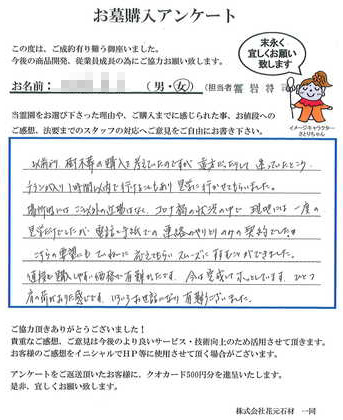 お墓購入アンケート
この度は、ご成約有り難う御座いました。
今後の商品開発、従業員成長の為にご協力お願い致します。
末永く
宜しくお願い
致します
お名前: (男・女) (担当者
イメージキャラクター
さとりちゃん
当霊園をお選び下さった理由や、ご購入までに感じられた事、お値段への
ご感想、法要までのスタッフの対応へご意見をご自由にお書き下さい。
以前所 樹木葬の購入を考えていたのですが 霊園 迷っていたところ
チラシが入り1時間以内で行けることもあり 見学に行かせてもらいました。
場所的には 近場はなく、コロナ禍の状況の中で 現地には 一度の
見学だけでしたが 電話と手紙での 連絡のやりとりのみの契約でしたが
こちらの要望にも ていねいに 応えてもらい スムーズに すすむことができました。
価格も購入しやすい価格で 有難かったです。 今は完成して ホッとしています。ひとつ
肩の荷がおりた感じです。 いろいろお世話になり 有難うございました。
ご協力頂きありがとうございました!
貴重なご感想、ご意見は今後のより良いサービス・技術向上のため活用させて頂きます。
お客様のご感想をイニシャルでHP等に使用させて頂く場合がございます。
アンケートをご返送頂いたお客様に、クオカード500円分を進呈いたします。
是非、宜しくお願い致します。
株式会社花元石材 一同